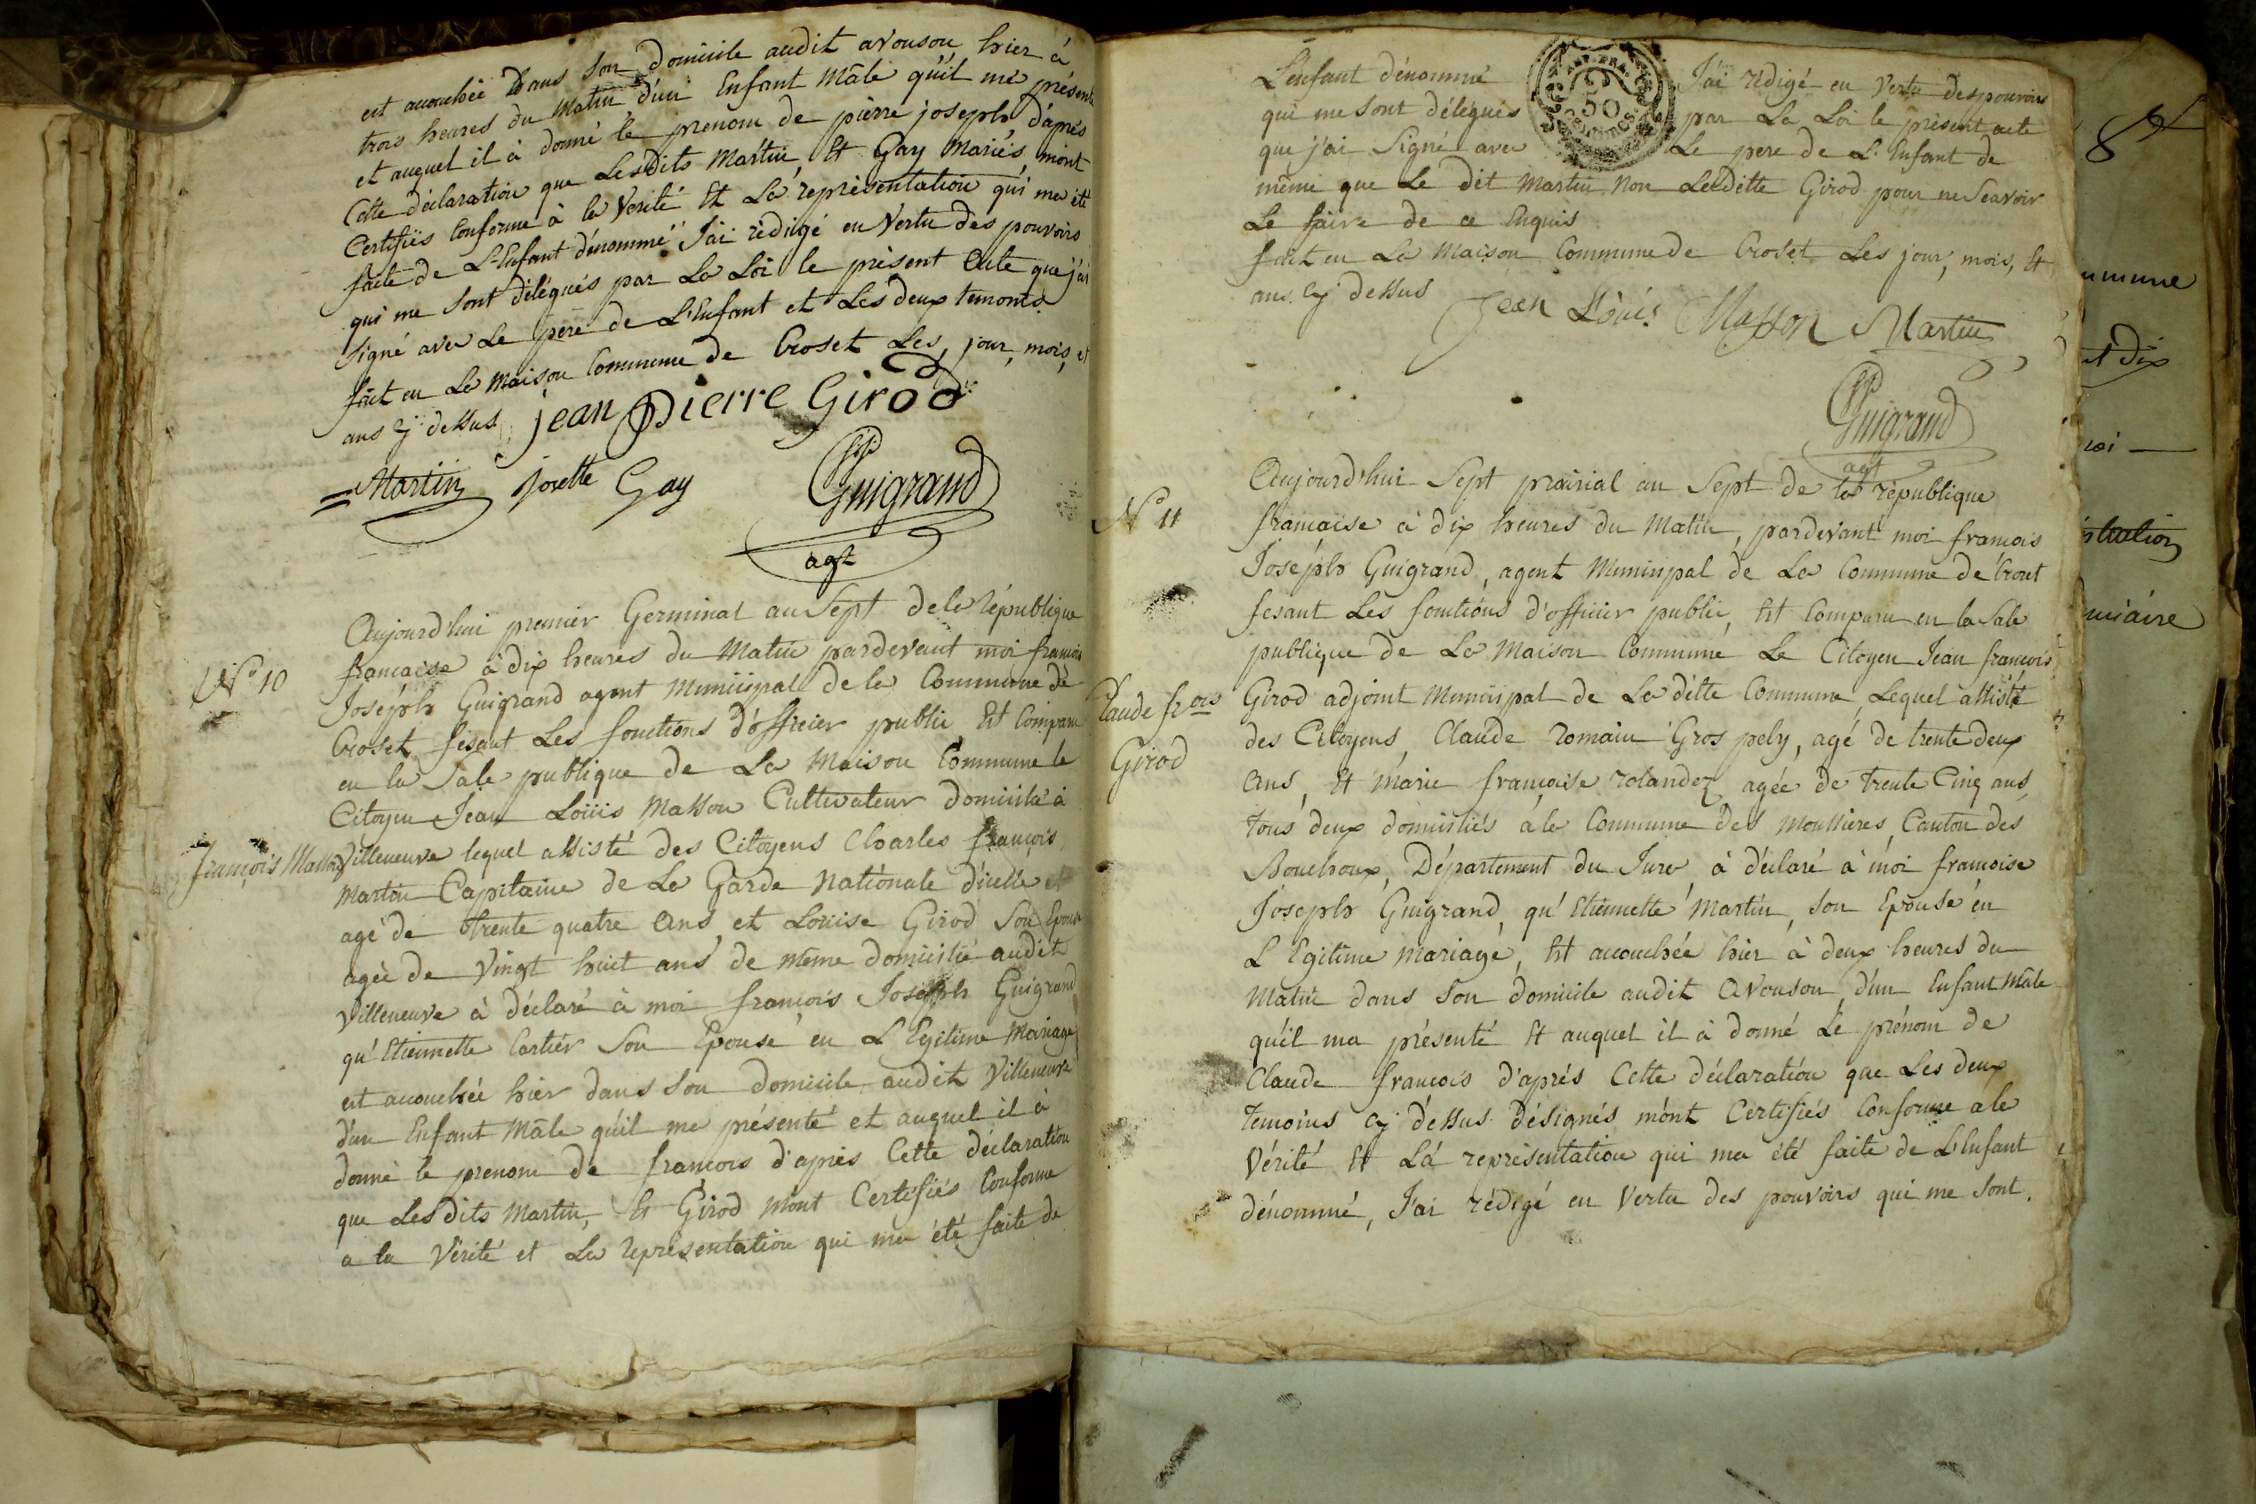 est accouchée Dans Son Domicile audit avouson hier à
trois heures du matin d'un Enfant Mâle qu'il me présente
et auquel il à donné le prenom de pierre joseph d'après
Cette déclaration que Lesdits Martin, Et Gay Mariés, m'ont
Certifiés Conforme à la Verité Et La représentation qui ma été
faite de L'Enfant dénommé J'ai rédigé en Vertu des pouvoirs
qui me sont délégués par La Loi le présent Acte que j'ai
Signé avec Le père de L'Enfant et Les deux temoins
fait en La maison Commune de Croset Les, jour, mois, et
ans cy dessus jean pierre Girod
Martin josette Gay Guigrand
agt
N° 10
Aujourd'hui premier Germinal an Sept de la république
française à dix heures du Matin pardevant moi françois
Joséph Guigrand agent Municipal de la Commune de
Croset fesant Les fonctions d'officier public, Est Comparu
en la Sale publique de La Maison Commune le
Citoyen Jean Loüis Masson Cultivateur domicilié à
françois Masson
Villeneuve lequel assisté des Citoyens Charles françois
Martin Capitaine de La Garde Nationale d'icelle et
agé de trente quatre Ans et Louise Girod Son Epouse
agée de Vingt huit ans de même domicilié audit
Villeneuve à déclaré à moi françois Joséph Guigrand
qu'Etiennette Cartier Son Epouse en L'Egitime Mariage
est accouchée hier dans Son domicile audit Villeneuve
d'un Enfant Mâle qu'il me présenté et auquel il à
donné le prenom de françois d'après Cette déclaration
que Lesdits Martin, Et Girod m'ont Certifiés Conforme
a la Vérité et La représentation qui ma été faite de
L'Enfant dénommé J'ai rédigé en Vertu des pouvoirs
qui me Sont délégués par La Loi le présent acte
que j'ai Signé avec Le pere de L'Enfant de
même que Le dit Martin Non Laditte Girod pour ne Scavoir
Le faire de ce Enquis
fait en La Maison Commune de Croset Les jour, mois, Et
ans cy dessus
Jean Lôuis Masson Martin
Guigrand
agt
50
N° 11
Aujourd'hui Sept prairial an Sept de la république
française à dix heures du Matin, pardevant moi françois
Joséph Guigrand, agent Municipal de La Commune de Croset
fesant Les fonctions d'officier public, Est Comparu en la Sale
publique de La Maison Commune Le Citoyen Jean françois
Claude frois
Girod
Girod adjoint Municipal de La ditte Commune, Lequel assisté
des Citoyens, Claude Romain Gros pely, agé de trente deux
Ans, Et Marie françoise rolandez agée de trente Cinq ans,
tous deux domiciliés à la Commune des Moussières, Canton des
Bouchoux, Département du Jura, à déclaré à moi françoise
Joseph Guigrand, qu'Etiennette Martin, Son Epouse en
L'Egitime Mariage, Est accouchée hier à deux heures du
Matin dans Son domicile audit Avouson, d'un Enfant Mâle
qu'il ma présenté Et auquel il à donné Le prénom de
Claude françois d'aprés Cette déclaration que Les deux
temoins cy dessus désignés m'ont Certifiés Conforme a la
Vérité Et Lá représentation qui ma été faite de L'Enfant
dénommé, J'ai rédigé en Vertu des pouvoirs qui me Sont
8
et dix